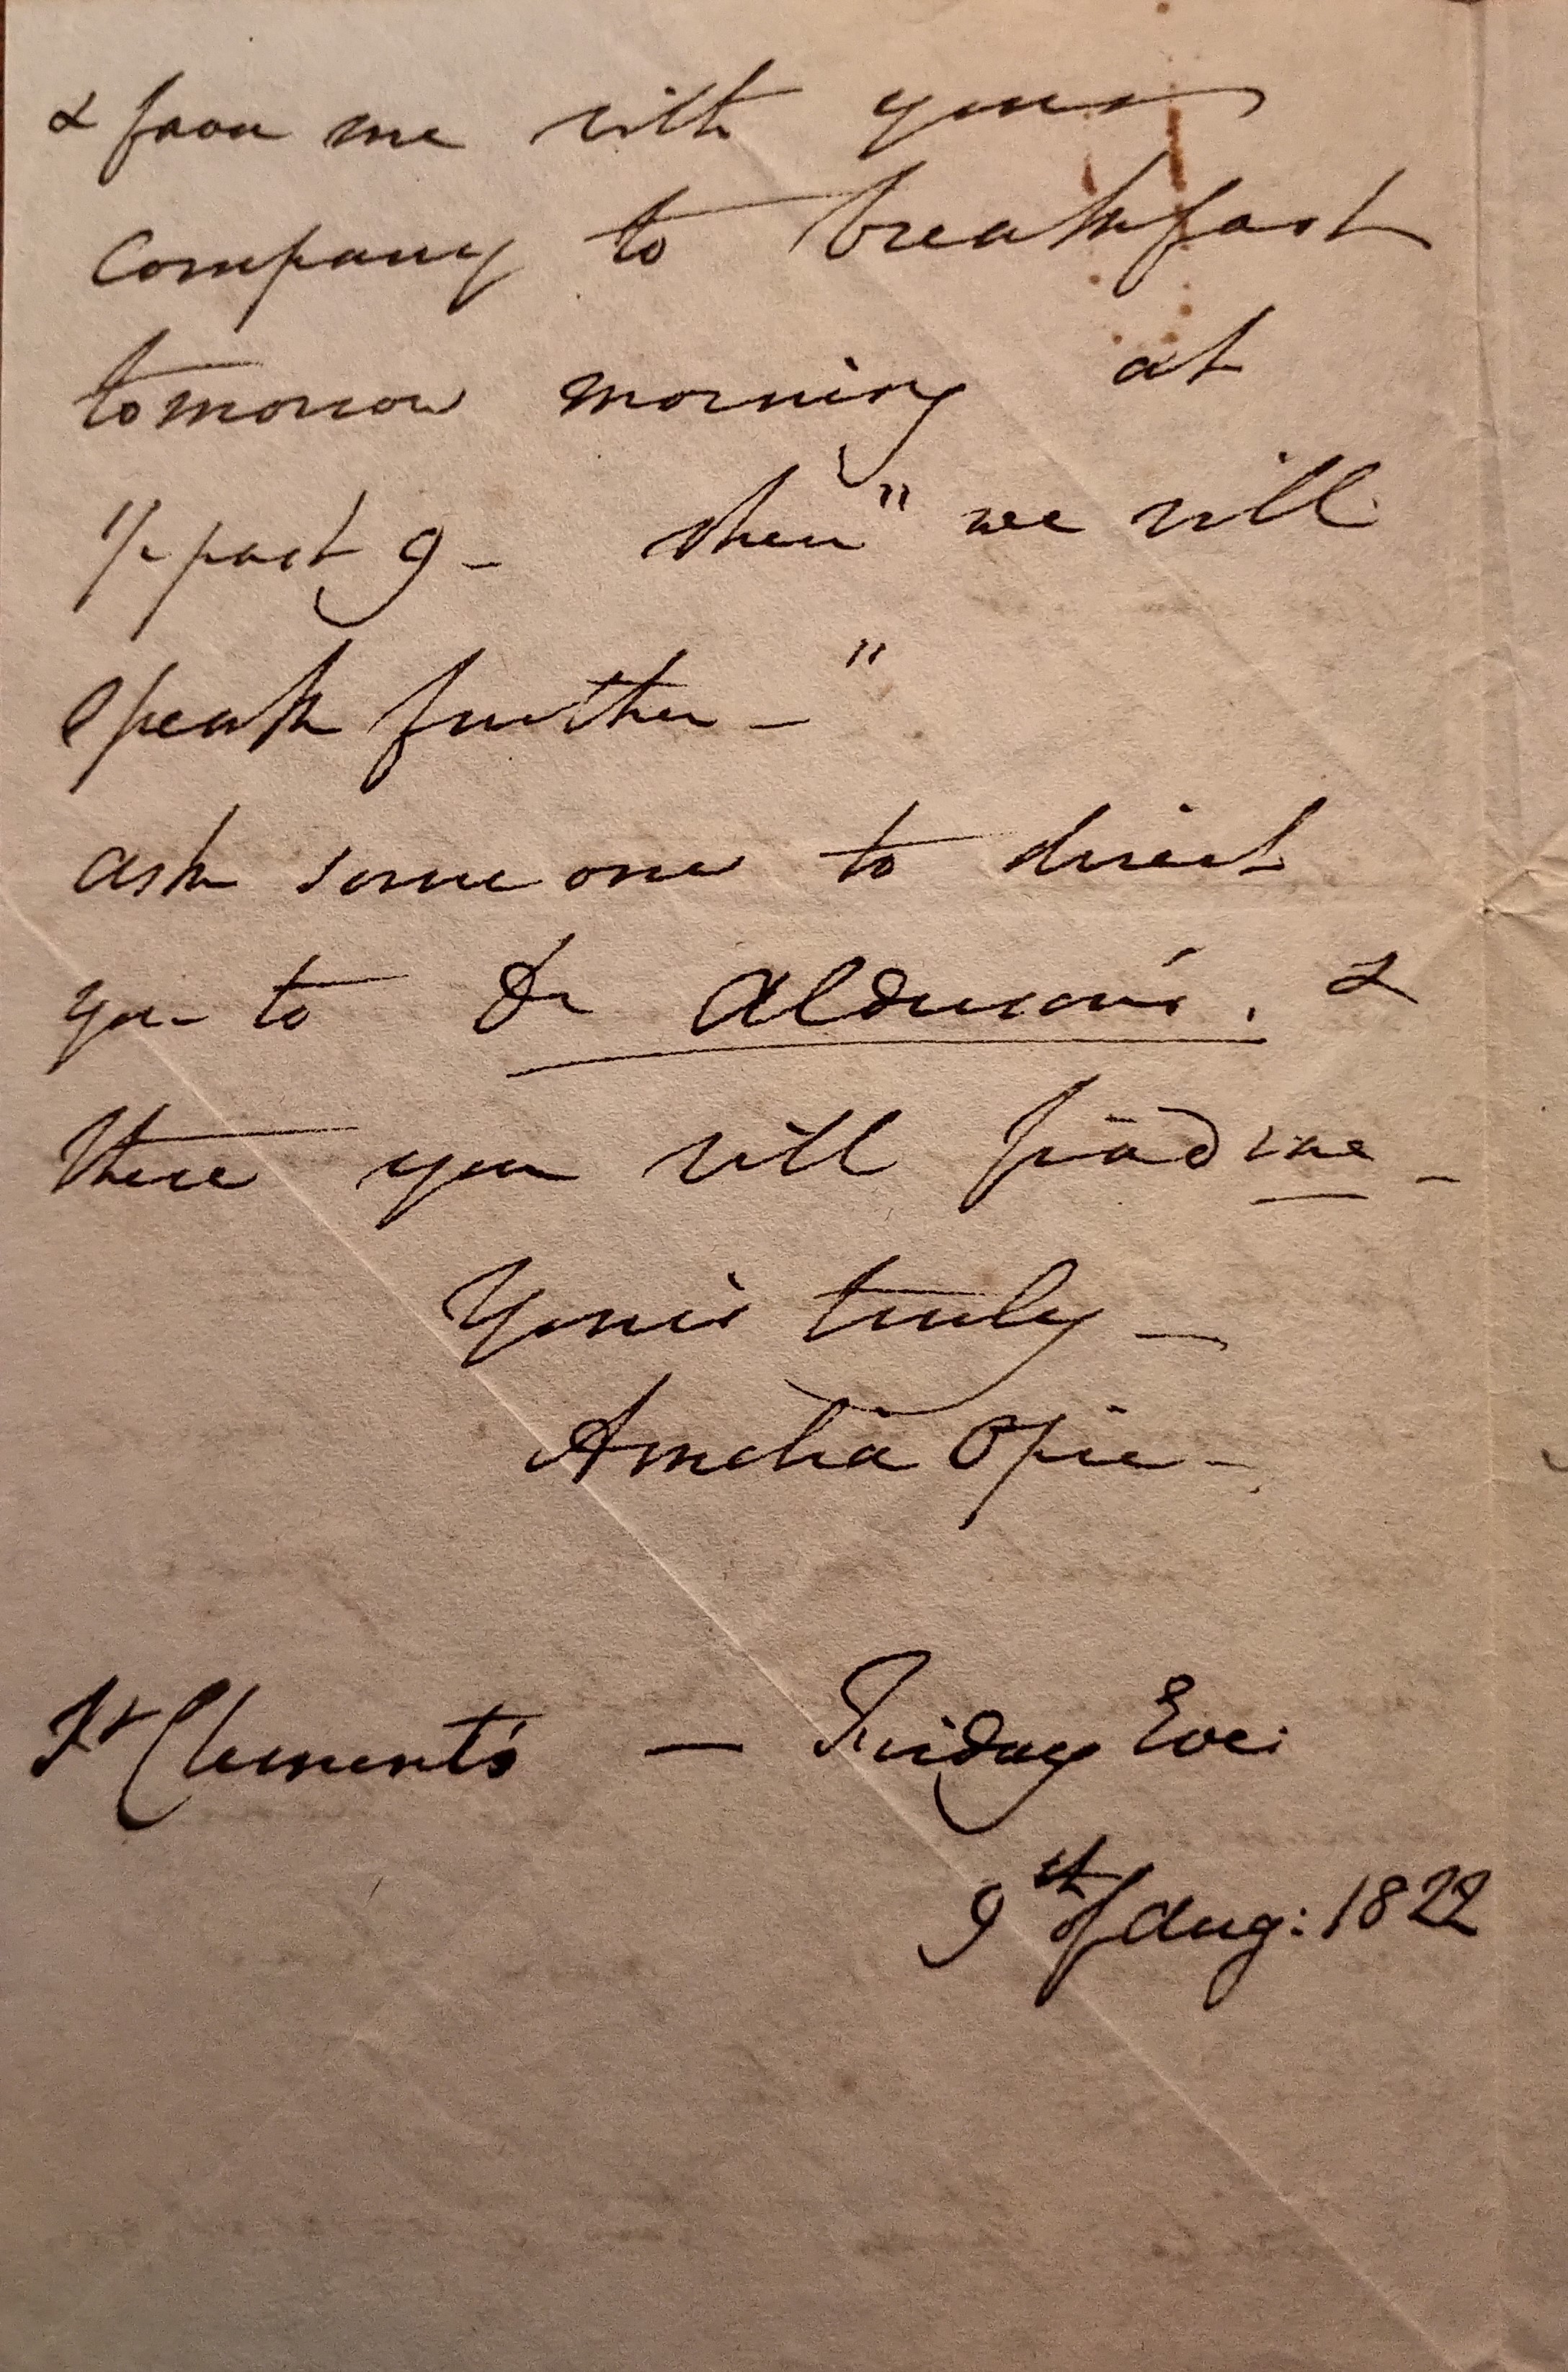 & favor me with your
company to breakfast
tomorrow morning at
1/2 past 9 - then " we will
speak further - "
ask some one to direct
you to Dr Alderson's. &
there you will find me -
Yours truly -
Amelia Opie -
St Clement's - Friday Eve:
9th of Aug: 1822